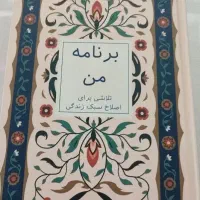 برنامه
من
تلاشی برای
اصلاح سبک زندگی